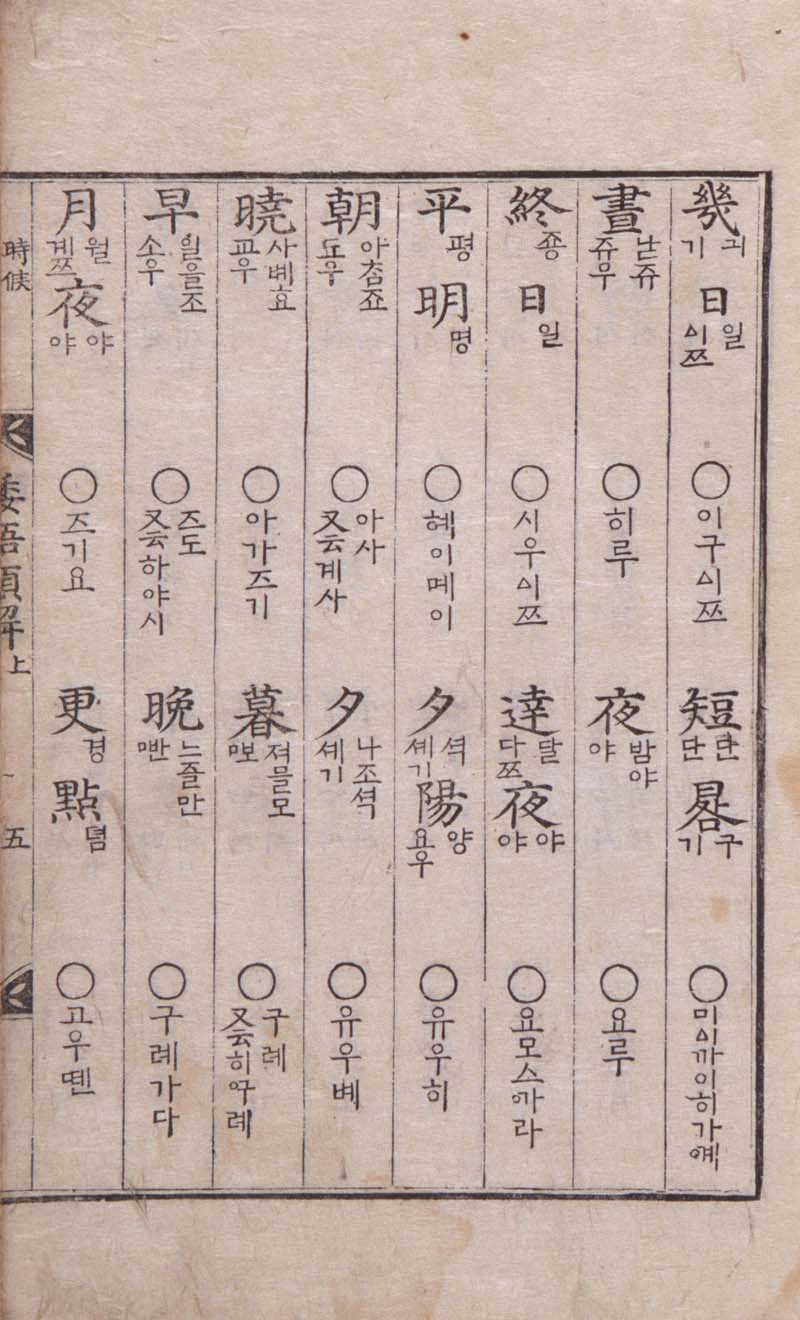 幾 긔 기 日 일 ᅀᅵ쯔 ○이구ᅀᅵ쯔 短 단 단 晷 구 기 ○미ᅀᅵ까이히가
晝 낟쥬 쥬우 ○히루 夜 밤야 야 ○요루
終 죵 日 일 ○시우ᅀᅵ쯔 達 달 다쯔 夜 야 야 ○요모스ᅁ가라
平 평 明 명 ○혜이몌이 夕 셕 셰기 陽 양 요우 ○유우히
朝 아ᄎᆞᆷ죠 됴우 ○아사 又云계사 夕 나조셕 셰기 ○유우볘
曉 사볘효 교우 ○아가즈기 暮 져믈모 ○구례 又云히
早 일을조 소우 ○즈도 又云하야시 晩 느즐만 ○구례가다
月 월 계쯔 夜 야 야 ○즈기요 更 경 點 뎜 ○고우뗀
時候 倭語類解上 五